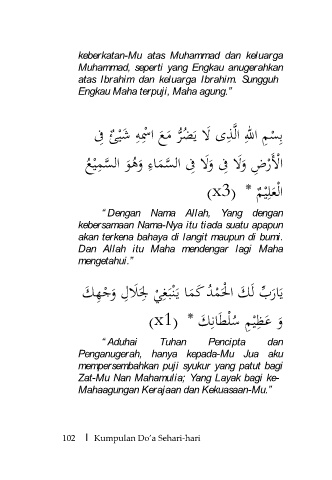 keberkatan-Mu atas Muhammad dan keluarga
Muhammad, seperti yang Engkau anugerahkan
atas Ibrahim dan keluarga Ibrahim. Sungguh
Engkau Maha terpuji, Maha agung."
بِسْمِ اللهِ الَّذِى لَا يَضُرُّ مَعَ اسْمِهِ شَيْئٌ فِى
الْأَرْضِ وَلَا فِى وَلَا فِى السَّمَاءِ وَهُوَ السَّمِيْعُ
الْعَلِيْمُ * (x3)
"Dengan Nama Allah, Yang dengan
kebersamaan Nama-Nya itu tiada suatu apapun
akan terkena bahaya di langit maupun di bumi.
Dan Allah itu Maha mendengar lagi Maha
mengetahui."
يَارَبِّ لَكَ الْحَمْدُ كَمَا يَنْبَغِيْ لِجَلَالِ وَجْهِكَ
وَ عَظِيْمِ سُلْطَانِكَ * (x1)
"Aduhai Tuhan Pencipta dan
Penganugerah, hanya kepada-Mu Jua aku
mempersembahkan puji syukur yang patut bagi
Zat-Mu Nan Mahamulia; Yang Layak bagi ke-
Mahaagungan Kerajaan dan Kekuasaan-Mu."
102 | Kumpulan Do'a Sehari-hari